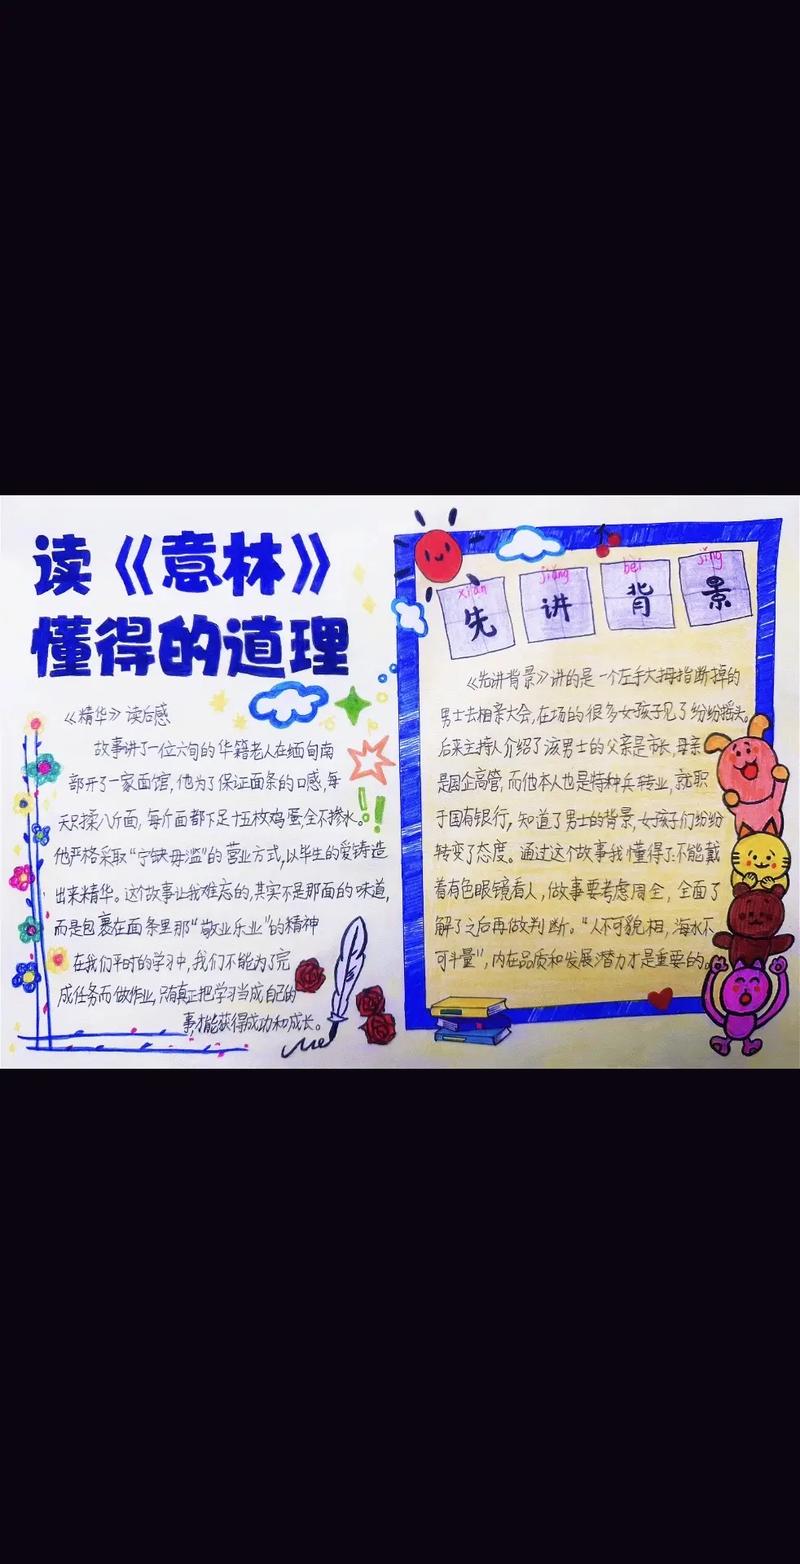 读《意林》
懂得的道理
《精华》读后感
故事讲了一位六旬的华籍老人在缅甸南
部开了一家面馆,他为了保证面条的口感,每
天只揉八斤面,每斤面都下足十五枚鸡蛋,全不掺水。
他严格采取“宁缺毋滥”的营业方式,以毕生的爱铸造
出来精华。这个故事让我难忘的,其实不是那面的味道,
而是包裹在面条里那“敬业乐业”的精神
在我们平时的学习中,我们不能为了完
成任务而做作业,只有真正把学习当成自己的
事,才能获得成功和成长。
xiān jiǎng bèi jǐng
先讲背景
《先讲背景》讲的是一个左手大拇指断掉的
男士去相亲大会,在场的很多女孩子见了纷纷摇头。
后来主持人介绍了该男士的父亲是市长,母亲
是国企高管,而他本人也是特种兵转业,就职
于国有银行,知道了男士的背景,女孩子们纷纷
转变了态度。通过这个故事我懂得了:不能戴
着有色眼镜看人,做事要考虑周全,全面了
解了之后再做判断。“人不可貌相,海水不
可斗量”,内在品质和发展潜力才是重要的。